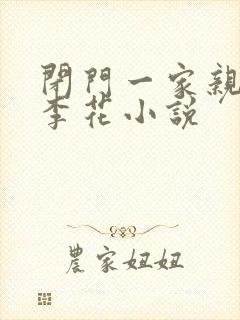 閉門一家親
李花小說
農家妞妞